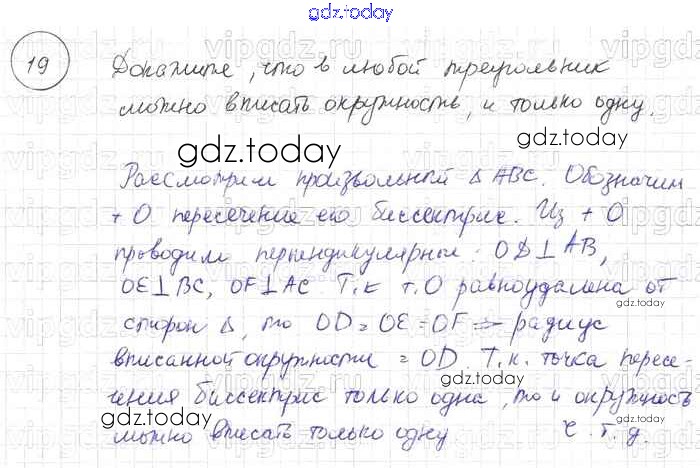 gdz.today
19
Докажите, что в любой треугольник
можно вписать окружность, и только одну.
gdz.today
gdz.today
Рассмотрим произвольный Δ ABC. Обозначим
т О пересечение его биссектрис. Из т О
проводим перпендикуляры: OD⊥AB,
OE⊥BC, OF⊥AC. Т.к т.О равноудалена от
gdz.today
gdz.today
сторон Δ, то OD = OE = OF => радиус
вписанной окружности = OD. Т.к. точка пересе-
gdz.today
чения биссектрис только одна, то и окружность
gdz.today
можно вписать только одну ч.т.д.
gdz.today